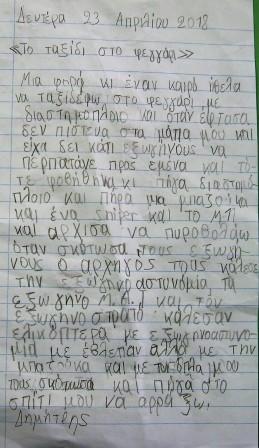 Δευτέρα 23 Απριλίου 2018
«Το ταξίδι στο φεγγάρι»
Μια φορά κι έναν καιρό ήθελα
να ταξιδέψω στο φεγγάρι με
διαστημόπλοιο και όταν έφτασα
δεν πίστευα στα μάτια μου και
είχα δει κάτι εξωγήινους να
περπατάνε προς εμένα και τό-
τε φοβήθηκα κι πήγα διαστημό
πλοιο και πήρα μια μπαζούκα
και ένα sniper και το Μ11
και άρχισα να πυροβολάω
όταν σκότωσα τους εξωγη-
νους ο αρχηγός τους κάλεσε
την εξωγηνοαστυνομία τα
εξωγηνο Μ.Α.Τ και τον
εξωγηνο στρατό κάλεσαν
ελικόπτερα με εξωγηνοαστυνο-
μία με έβλεπαν αλλά με την
μπαζούκα και με τα όπλα μου
τους σκότωσα και πήγα στο
σπίτι μου να αράξω.
Δημήτρης